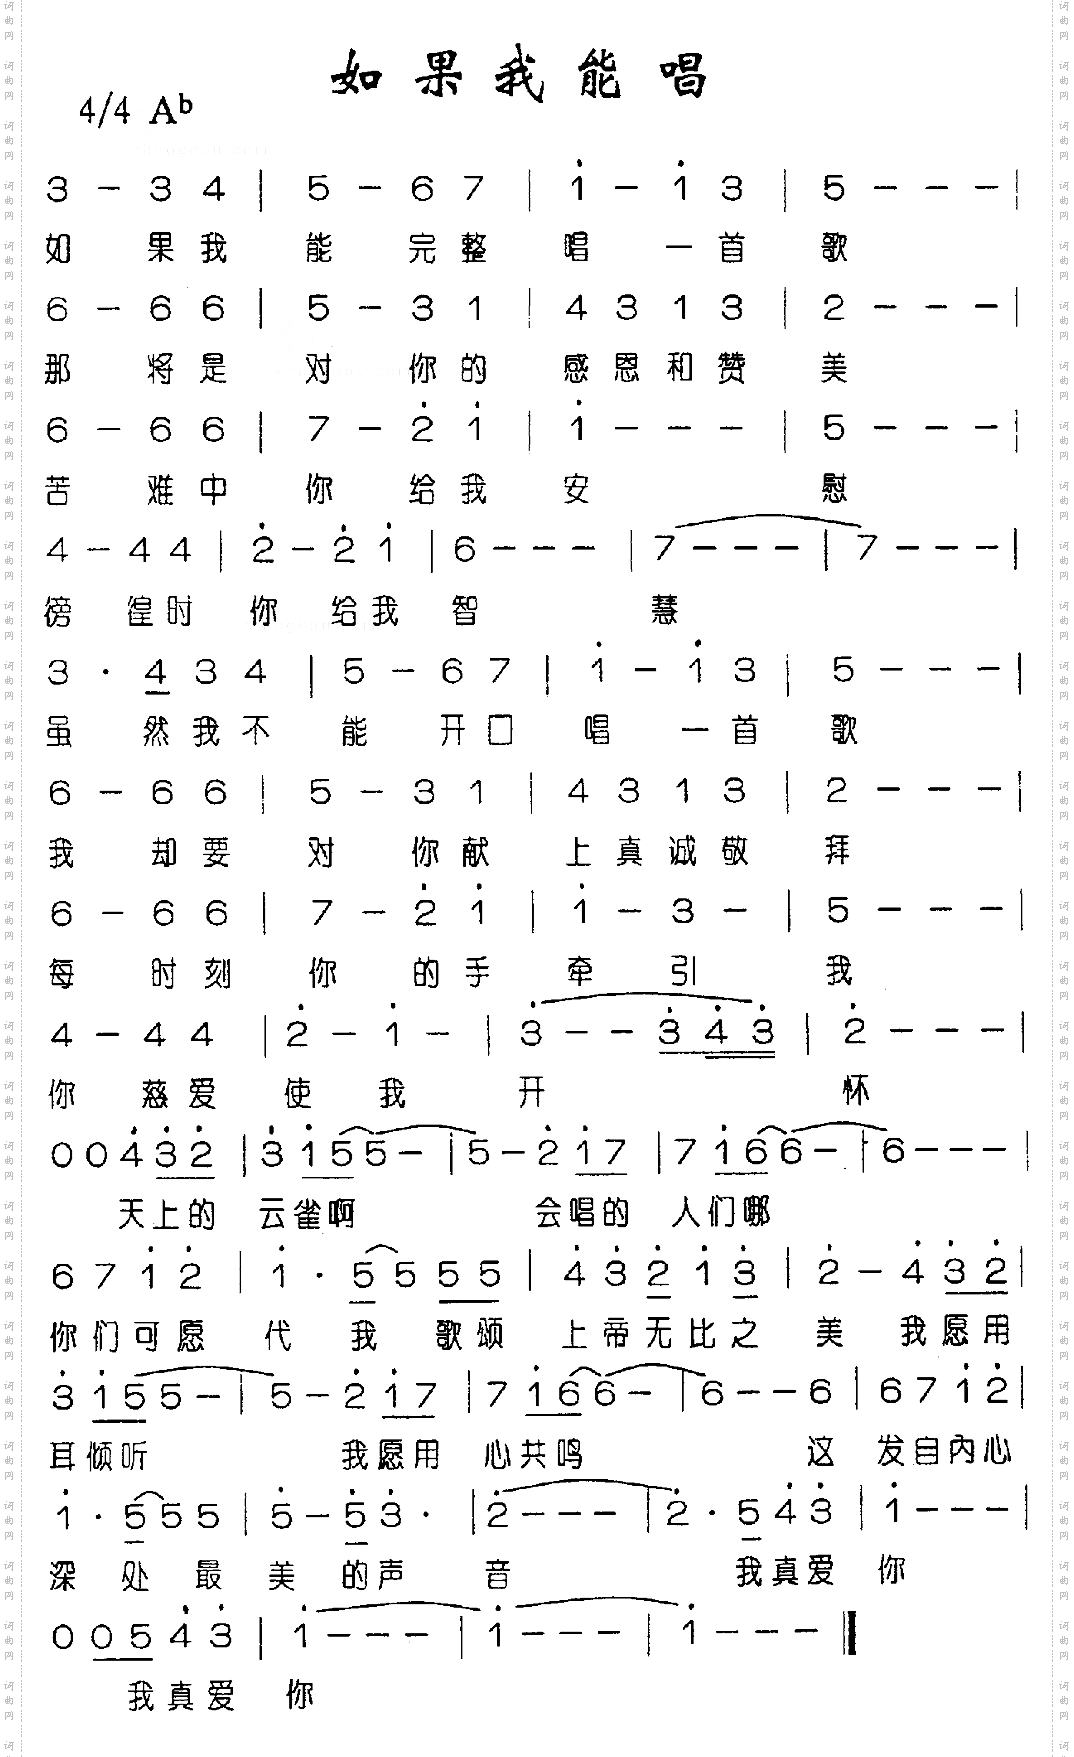 如果我能唱
4/4 Aᵇ
3 - 3 4 | 5 - 6 7 | 1̇ - 1̇ 3 | 5 - - - |
如 果我 能 完整 唱 一首 歌
6 - 6 6 | 5 - 3 1 | 4 3 1 3 | 2 - - - |
那 将是 对 你的 感恩和赞 美
6 - 6 6 | 7 - 2̇ 1̇ | 1̇ - - - | 5 - - - |
苦 难中 你 给我 安 慰
4 - 4 4 | 2̇ - 2̇ 1̇ | 6 - - - | 7 - - - | 7 - - - |
徬 徨时 你 给我 智 慧
3 · 4 3 4 | 5 - 6 7 | 1̇ - 1̇ 3 | 5 - - - |
虽 然我不 能 开口 唱 一首 歌
6 - 6 6 | 5 - 3 1 | 4 3 1 3 | 2 - - - |
我 却要 对 你献 上真诚敬 拜
6 - 6 6 | 7 - 2̇ 1̇ | 1̇ - 3 - | 5 - - - |
每 时刻 你 的手 牵 引 我
4 - 4 4 | 2̇ - 1̇ - | 3̇ - - 3̇ 4̇ 3̇ | 2̇ - - - |
你 慈爱 使 我 开 怀
0 0 4̇ 3̇ 2̇ | 3̇ 1̇ 5 5 - | 5 - 2̇ 1̇ 7 | 7 1̇ 6 6 - | 6 - - - |
天上的 云雀啊 会唱的 人们哪
6 7 1̇ 2̇ | 1̇ · 5 5 5 5 | 4̇ 3̇ 2̇ 1̇ 3̇ | 2̇ - 4̇ 3̇ 2̇ |
你们可愿 代 我 歌颂 上帝无比之 美 我愿用
3̇ 1̇ 5 5 - | 5 - 2̇ 1̇ 7 | 7 1̇ 6 6 - | 6 - - 6 | 6 7 1̇ 2̇ |
耳倾听 我愿用 心共鸣 这 发自内心
1̇ · 5 5 5 | 5 - 5 3̇ · | 2̇ - - - | 2̇ · 5 4̇ 3̇ | 1̇ - - - |
深 处 最 美 的声 音 我真爱 你
0 0 5 4̇ 3̇ | 1̇ - - - | 1̇ - - - | 1̇ - - - ‖
我真爱 你
词曲网